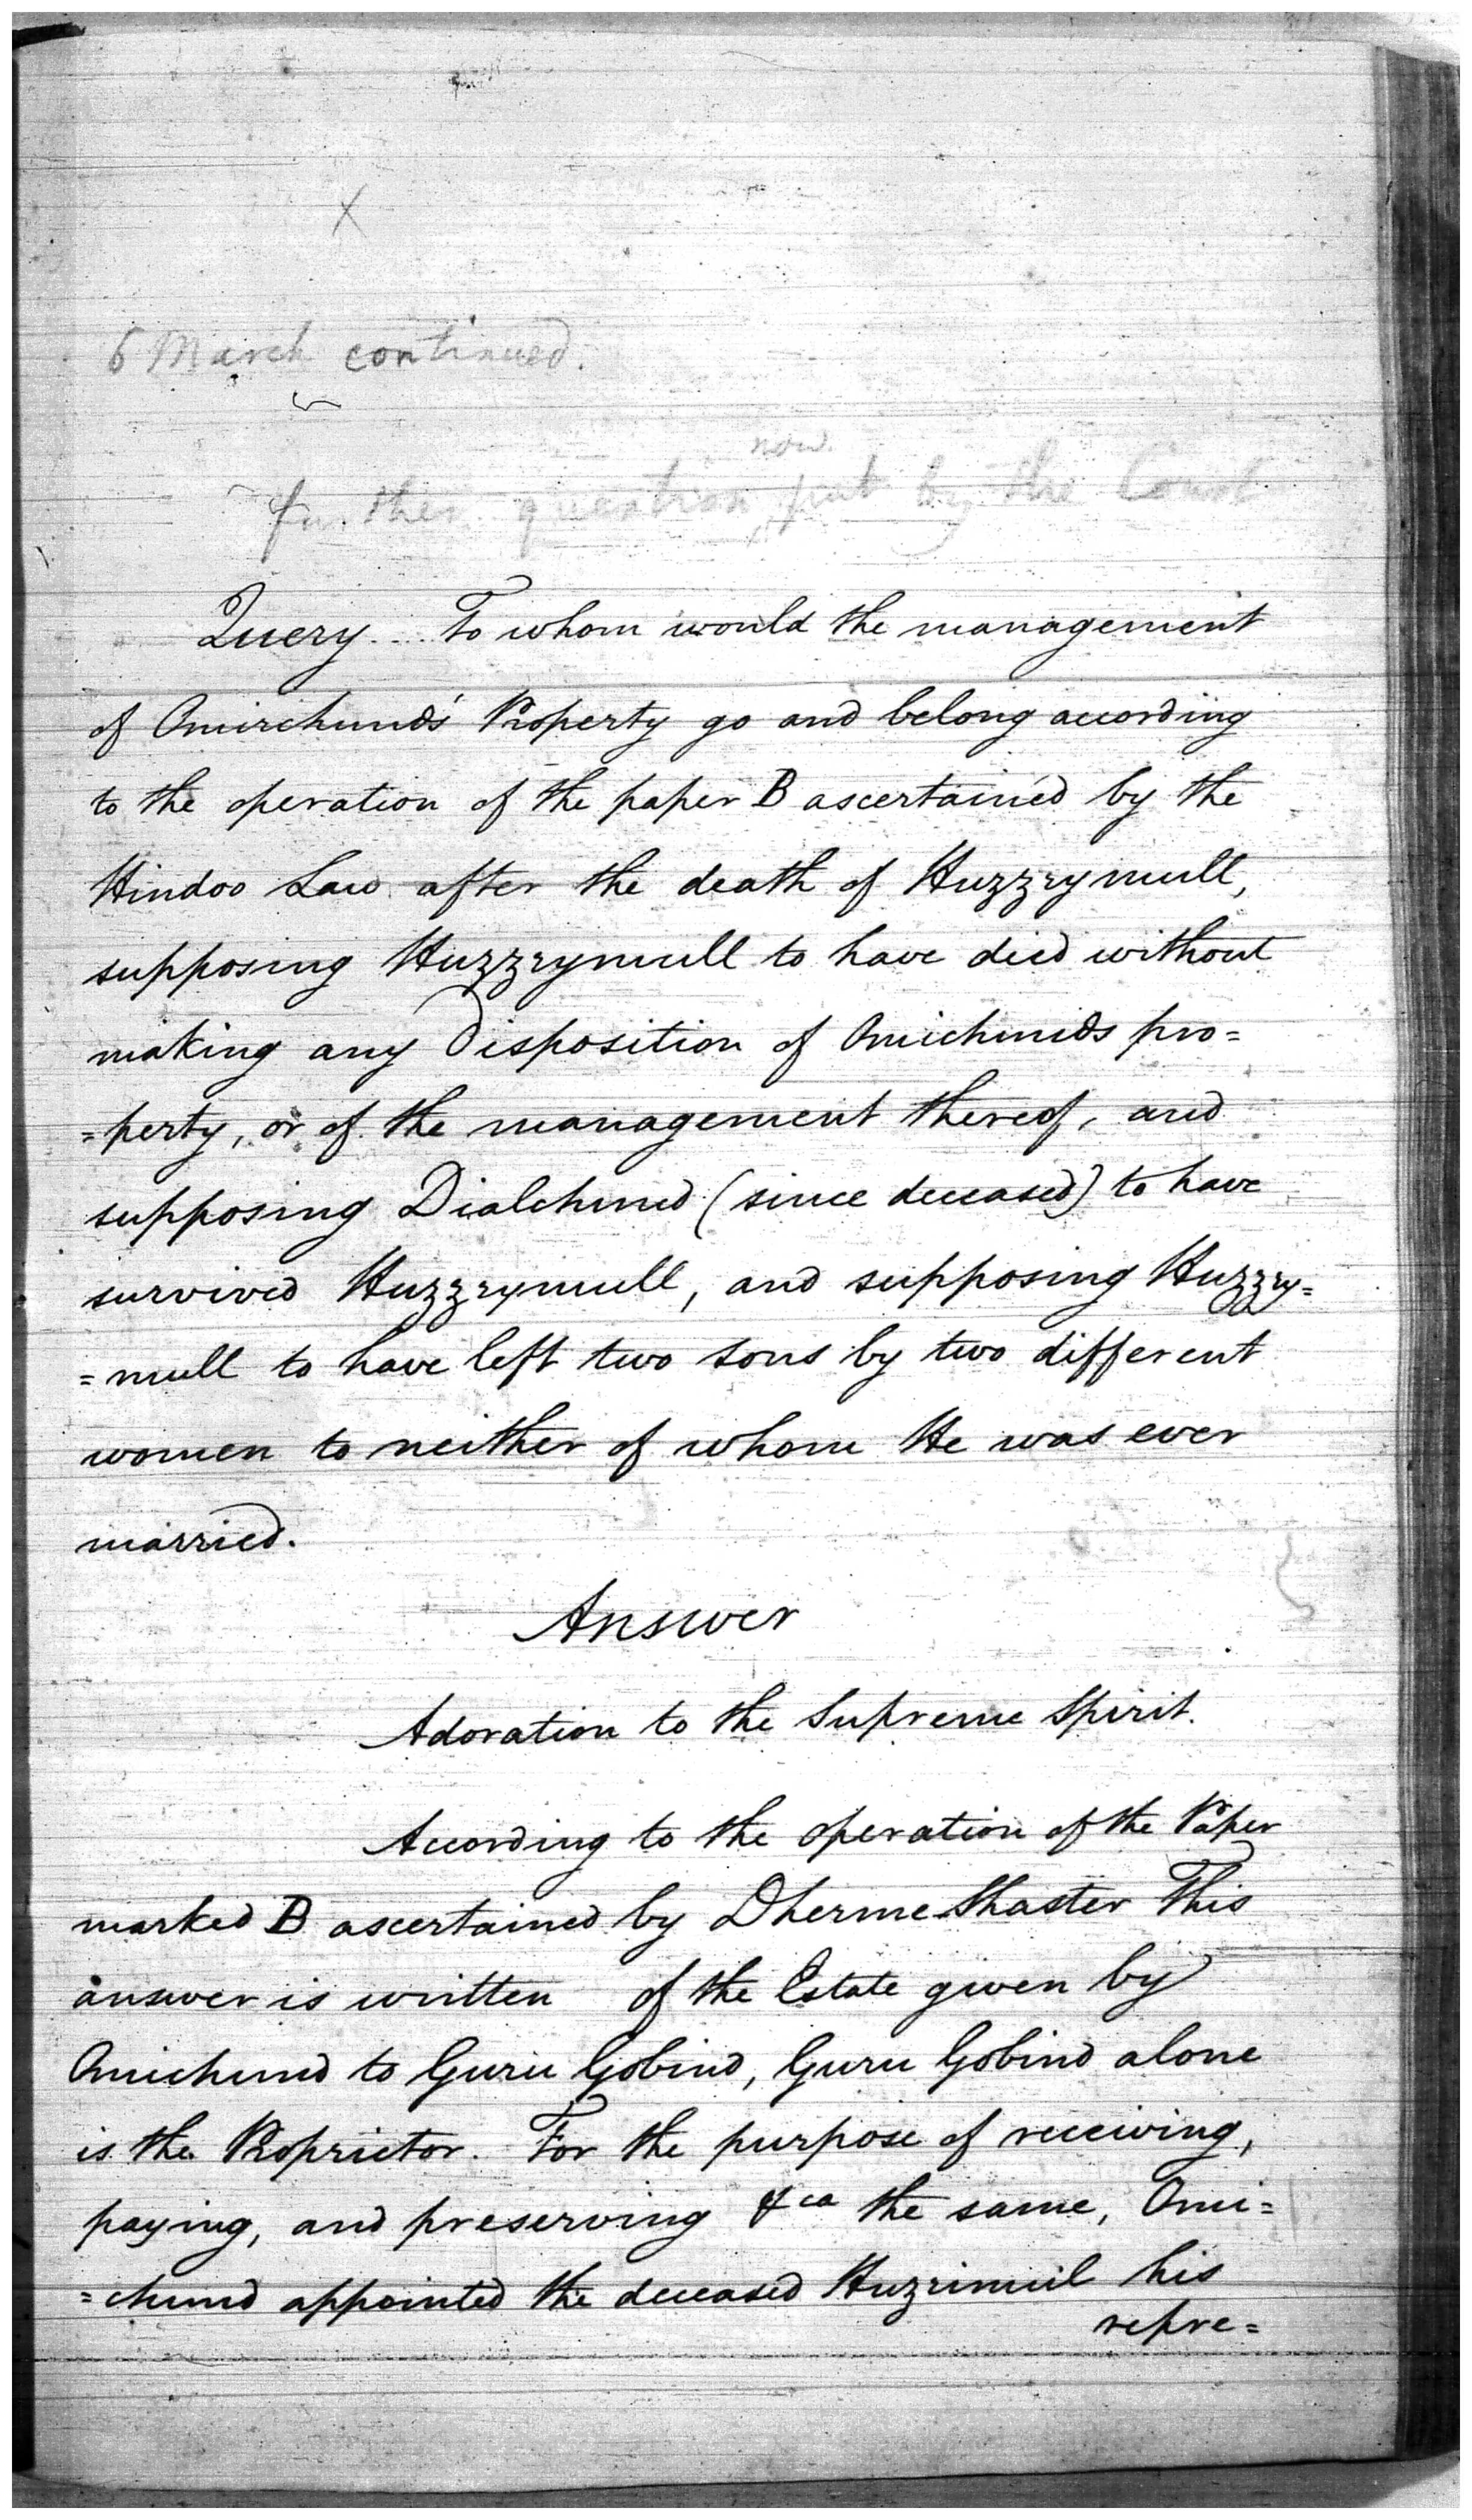 X
6 March continued.
now
further question put by the Court
Query... To whom would the management
of Omirchund's Property go and belong according
to the operation of the paper B ascertained by the
Hindoo Law after the death of Huzzrymull,
supposing Huzzrymull to have died without
making any Disposition of Omichunds pro=
=perty, or of the management thereof, and
supposing Dialchund (since deceased) to have
survived Huzzrymull, and supposing Huzzry=
=mull to have left two sons by two different
women to neither of whom He was ever
married.
Answer
Adoration to the Supreme Spirit.
According to the operation of the Paper
marked B ascertained by Dherme Shaster This
answer is written of the Estate given by
Omichund to Guru Gobind, Guru Gobind alone
is the Proprietor. For the purpose of receiving,
paying, and preserving &ca the same, Omi=
=chund appointed the deceased Huzrimul his
repre=